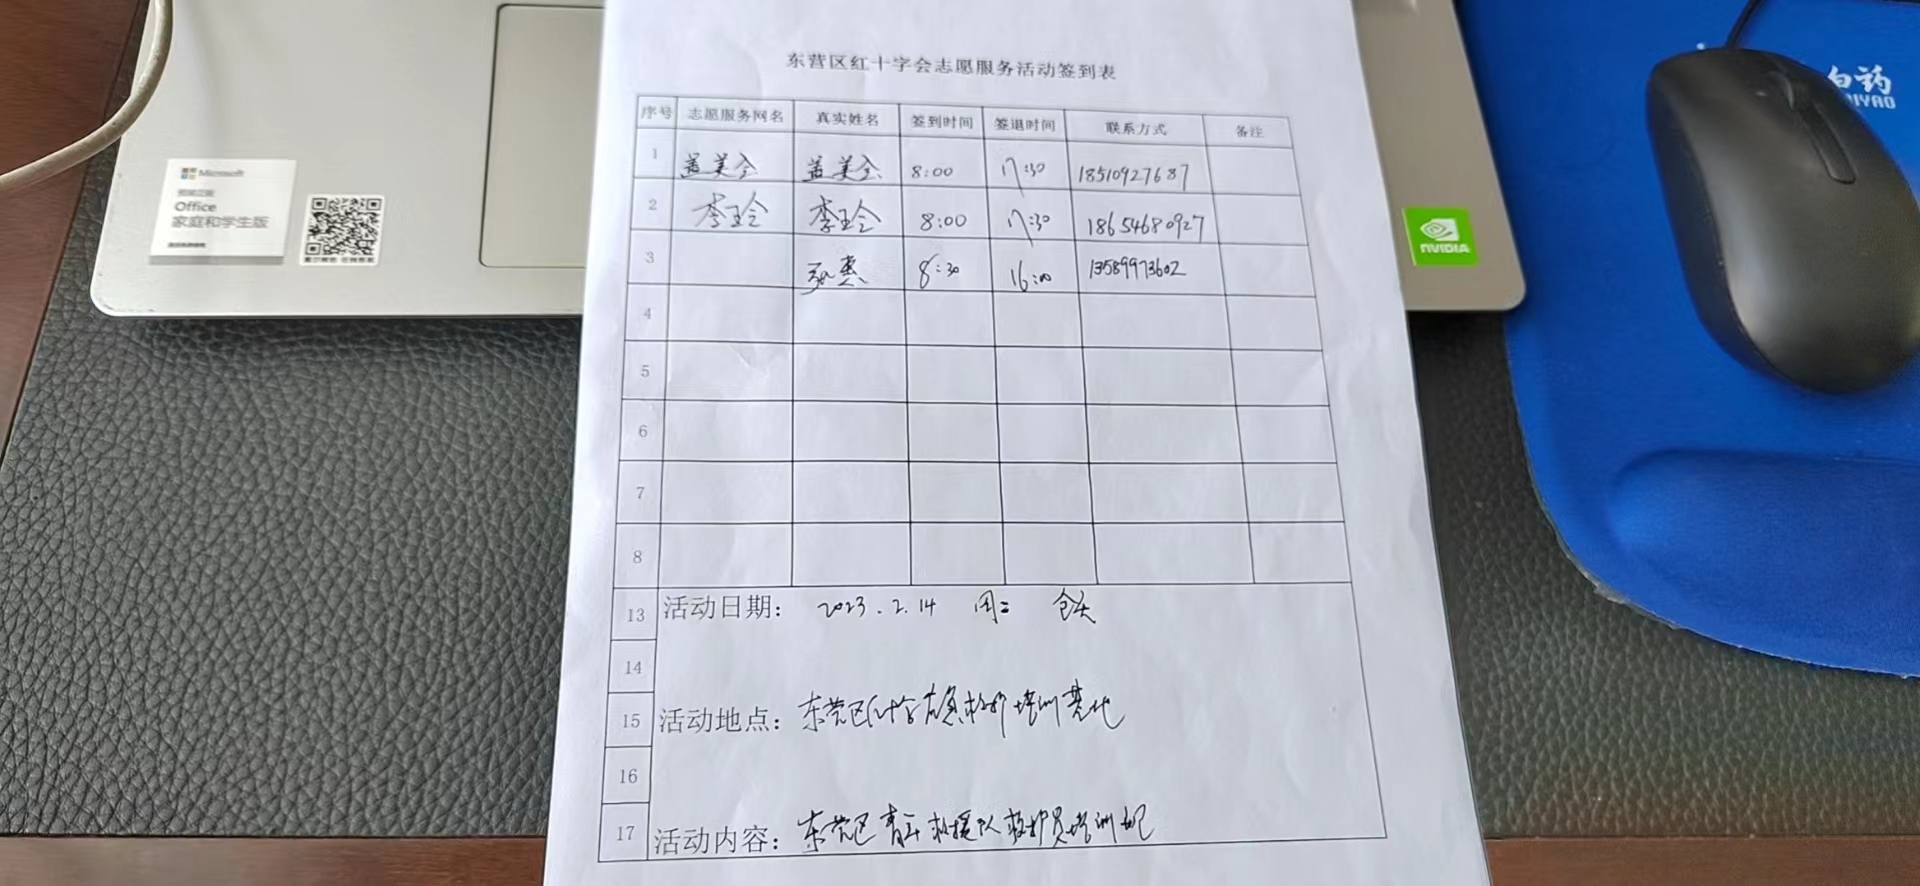 东营区红十字会志愿服务活动签到表
序号 志愿服务网名 真实姓名 签到时间 签退时间 联系方式 备注
1 盖美全 盖美全 8:00 17:30 18510927687
2 李玉玲 李玉玲 8:00 17:30 18654680927
3 8:30 16:00 13589973602
4
5
6
7
8
13 活动日期: 2023.2.14 周二 全天
14
15 活动地点: 东营区红十字应急救护培训基地
16
17 活动内容: 东营区青年救援队救护员培训班
Microsoft
Office
家庭和学生版
NVIDIA
白药